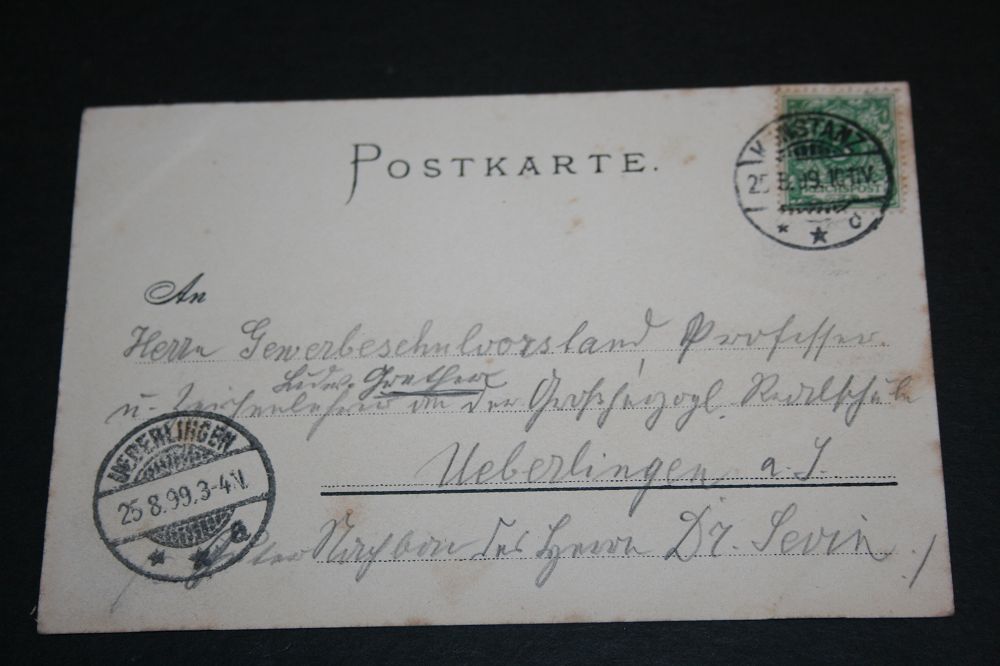 POSTKARTE.
KONSTANZ
25.8.99.10-11V.
* * c
REICHSPOST
An
Herrn Gewerbeschulvorstand Professor
Ludw. Grether
u. Zeichenlehrer an der Großherzogl. Realschule
Ueberlingen a. S.
UEBERLINGEN
25.8.99.3-4.V.
* * a
Nachbar des Herrn Dr. Sevin